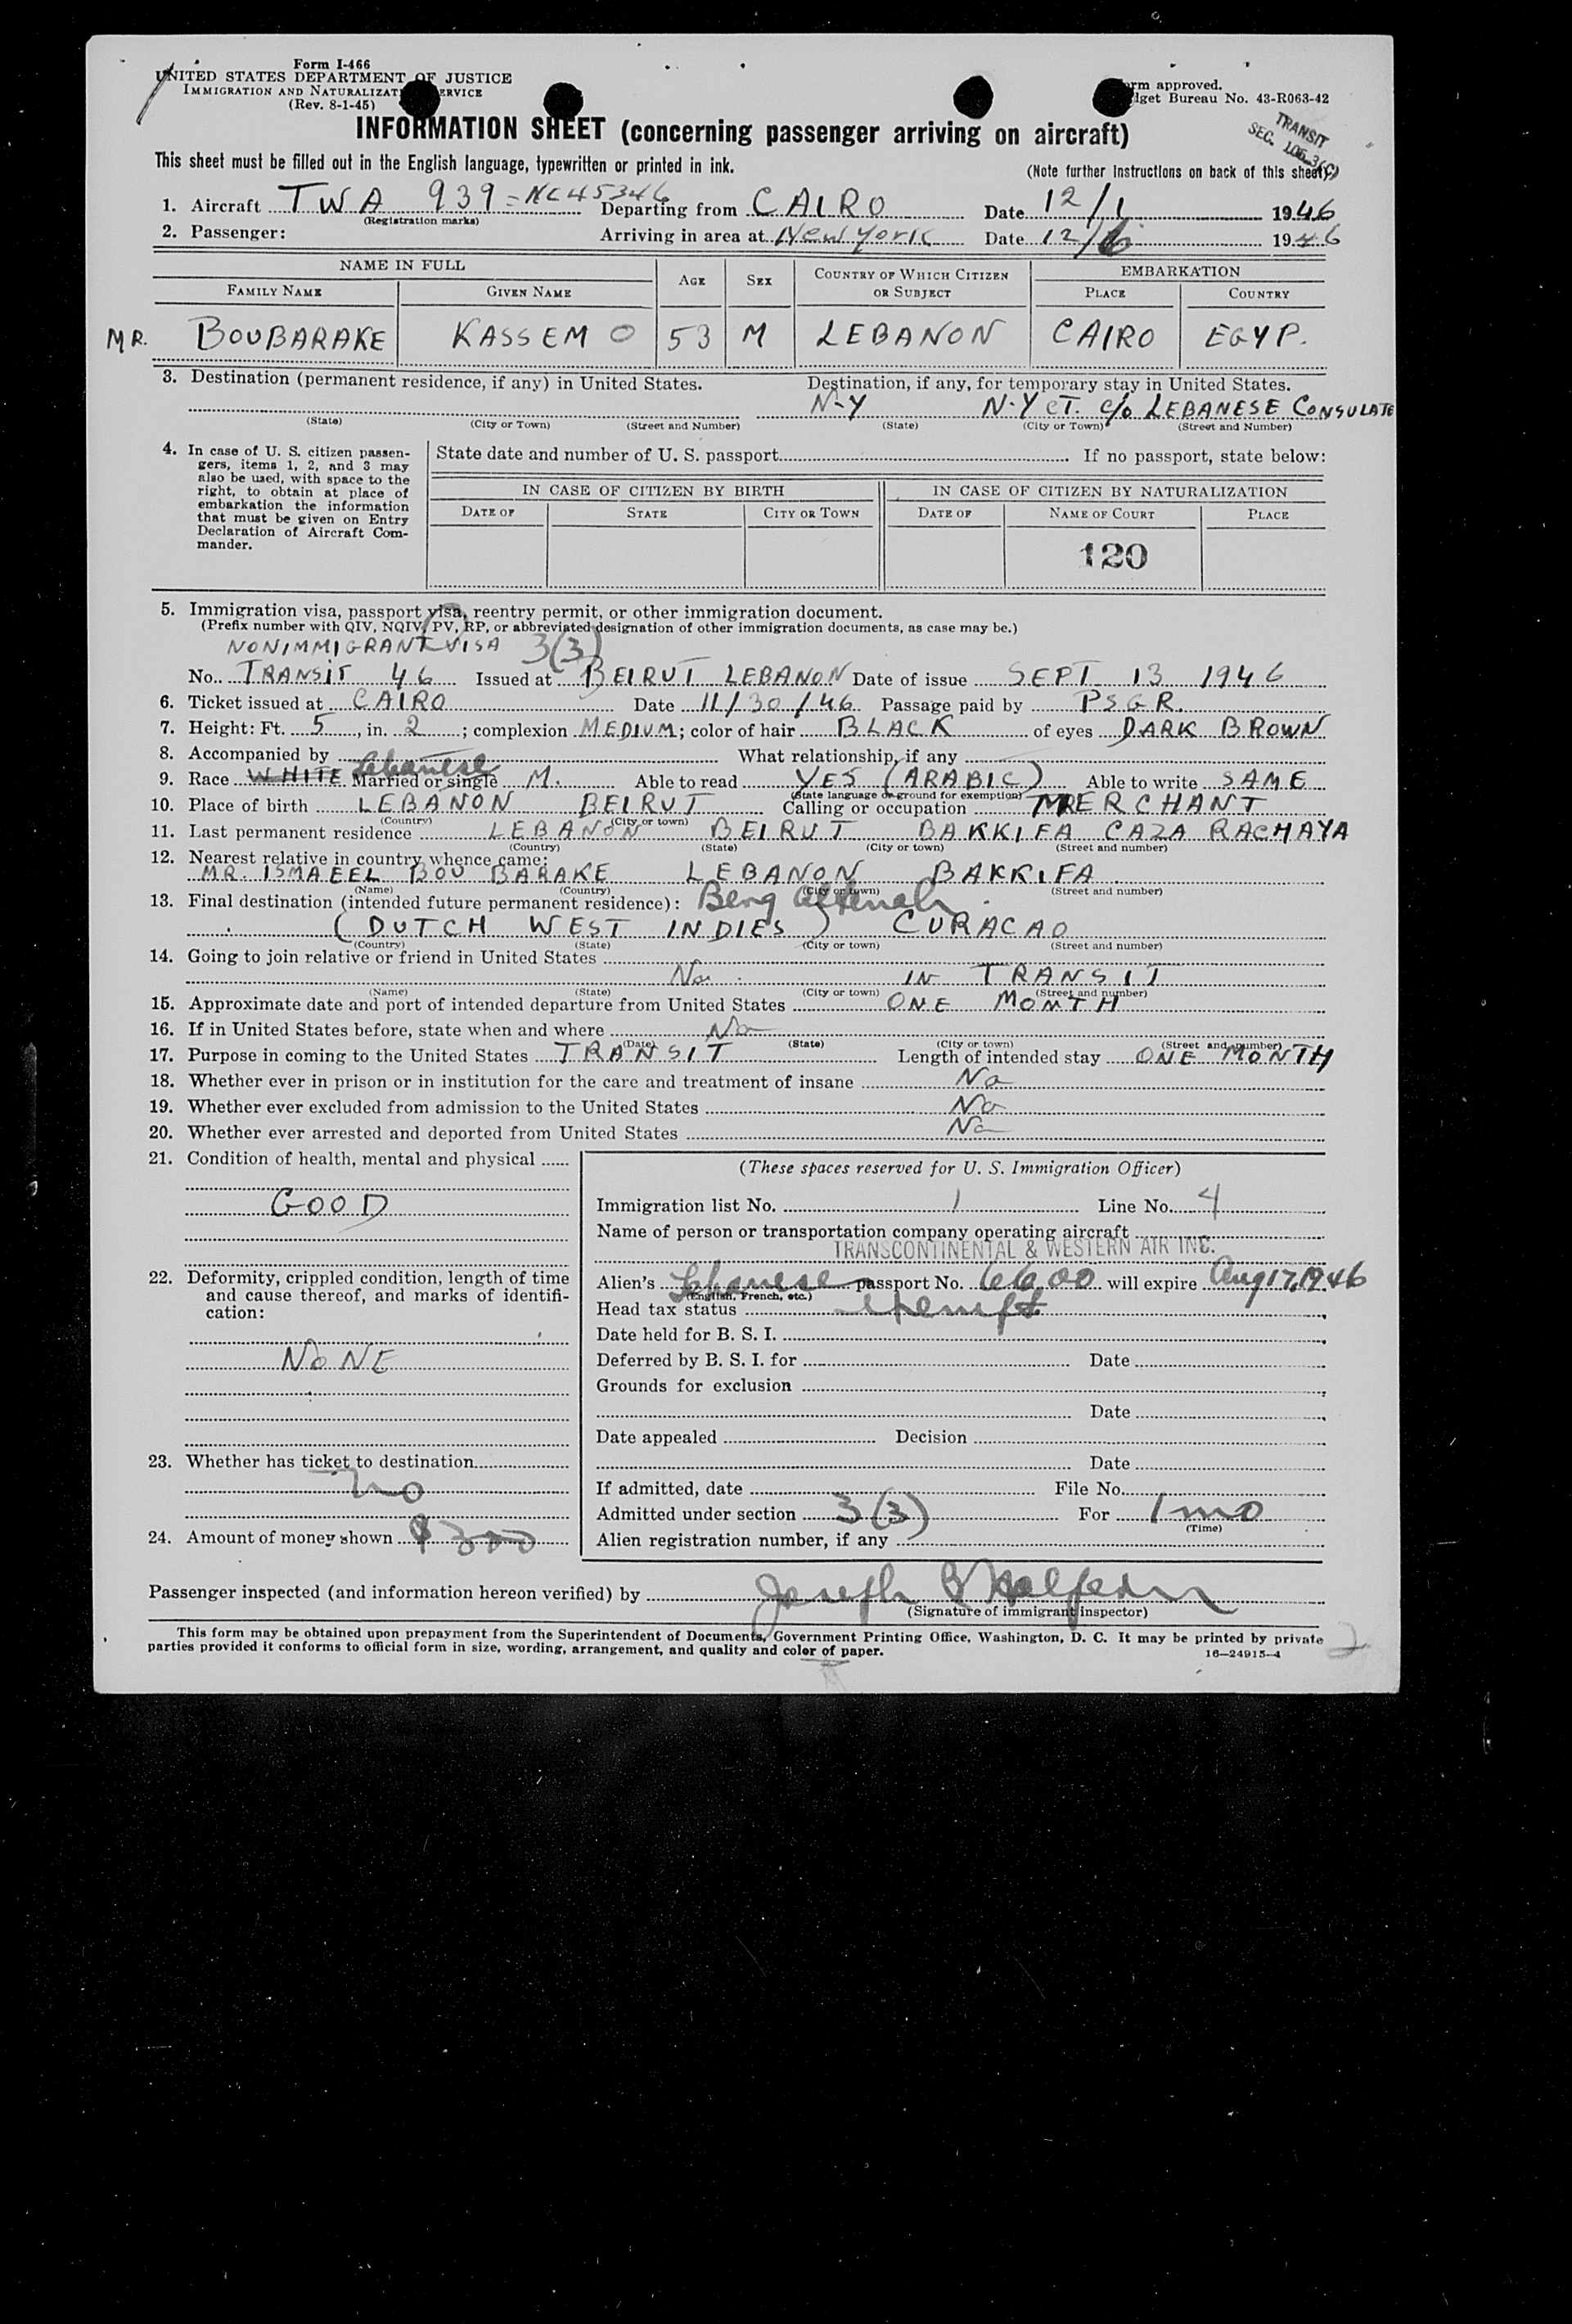 Form I-466
UNITED STATES DEPARTMENT OF JUSTICE
IMMIGRATION AND NATURALIZAT ERVICE
(Rev. 8-1-45)
rm approved.
dget Bureau No. 43-R063-42
TRANSIT
SEC. 106.3(C)
INFORMATION SHEET (concerning passenger arriving on aircraft)
This sheet must be filled out in the English language, typewritten or printed in ink. (Note further instructions on back of this sheet.)
1. Aircraft TWA 939 = NC45346 Departing from CAIRO Date 12/1 1946
(Registration marks)
2. Passenger: Arriving in area at New York Date 12/6 1946
NAME IN FULL AGE SEX COUNTRY OF WHICH CITIZEN OR SUBJECT EMBARKATION
FAMILY NAME GIVEN NAME PLACE COUNTRY
MR. BOUBARAKE KASSEM O 53 M LEBANON CAIRO EGYP.
3. Destination (permanent residence, if any) in United States. Destination, if any, for temporary stay in United States.
N-Y N-Y CT. c/o LEBANESE CONSULATE
(State) (City or Town) (Street and Number) (State) (City or Town) (Street and Number)
4. In case of U. S. citizen passen-
gers, items 1, 2, and 3 may
also be used, with space to the
right, to obtain at place of
embarkation the information
that must be given on Entry
Declaration of Aircraft Com-
mander.
State date and number of U. S. passport If no passport, state below:
IN CASE OF CITIZEN BY BIRTH IN CASE OF CITIZEN BY NATURALIZATION
DATE OF STATE CITY OR TOWN DATE OF NAME OF COURT PLACE
120
5. Immigration visa, passport visa, reentry permit, or other immigration document.
(Prefix number with QIV, NQIV, PV, RP, or abbreviated designation of other immigration documents, as case may be.)
NONIMMIGRANT VISA 3(3)
No. TRANSIT 46 Issued at BEIRUT LEBANON Date of issue SEPT 13 1946
6. Ticket issued at CAIRO Date 11/30/46 Passage paid by PSGR.
7. Height: Ft. 5, in. 2; complexion MEDIUM; color of hair BLACK of eyes DARK BROWN
8. Accompanied by What relationship, if any
9. Race WHITE Lebanese Married or single M. Able to read YES (ARABIC) Able to write SAME
(State language or ground for exemption)
10. Place of birth LEBANON BEIRUT Calling or occupation MERCHANT
(Country) (City or town)
11. Last permanent residence LEBANON BEIRUT BAKKIFA CAZA RACHAYA
(Country) (State) (City or town) (Street and number)
12. Nearest relative in country whence came:
MR. ISMAEEL BOU BARAKE LEBANON BAKKIFA
(Name) (Country) (City or town) (Street and number)
13. Final destination (intended future permanent residence):
(DUTCH WEST INDIES) CURACAO
(Country) (State) (City or town) (Street and number)
14. Going to join relative or friend in United States
No IN TRANSIT
(Name) (State) (City or town) (Street and number)
15. Approximate date and port of intended departure from United States ONE MONTH
16. If in United States before, state when and where No
(Date) (State) (City or town) (Street and number)
17. Purpose in coming to the United States TRANSIT Length of intended stay ONE MONTH
18. Whether ever in prison or in institution for the care and treatment of insane No
19. Whether ever excluded from admission to the United States No
20. Whether ever arrested and deported from United States No
21. Condition of health, mental and physical
GOOD
22. Deformity, crippled condition, length of time
and cause thereof, and marks of identifi-
cation:
NONE
23. Whether has ticket to destination
no
24. Amount of money shown $300
(These spaces reserved for U. S. Immigration Officer)
Immigration list No. 1 Line No. 4
Name of person or transportation company operating aircraft
TRANSCONTINENTAL & WESTERN AIR INC.
Alien's Lebanese passport No. 6600 will expire Aug 17, 1946
(English, French, etc.)
Head tax status exempt
Date held for B. S. I.
Deferred by B. S. I. for Date
Grounds for exclusion
Date
Date appealed Decision
Date
If admitted, date File No.
Admitted under section 3(3) For 1 mo
(Time)
Alien registration number, if any
Passenger inspected (and information hereon verified) by Joseph
(Signature of immigrant inspector)
This form may be obtained upon prepayment from the Superintendent of Documents, Government Printing Office, Washington, D. C. It may be printed by private
parties provided it conforms to official form in size, wording, arrangement, and quality and color of paper.
16—24915-4
2